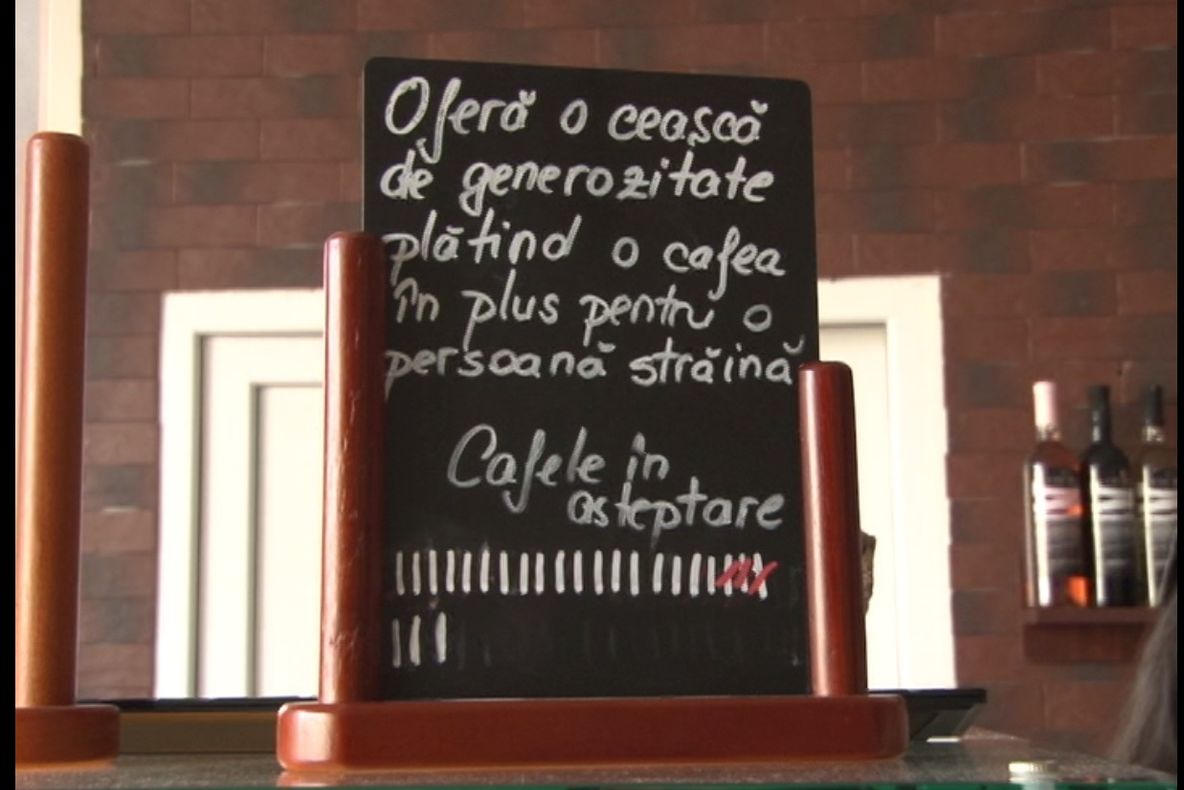 Oferă o ceașcă
de generozitate
plătind o cafea
în plus pentru o
persoană străină
Cafele în
asteptare